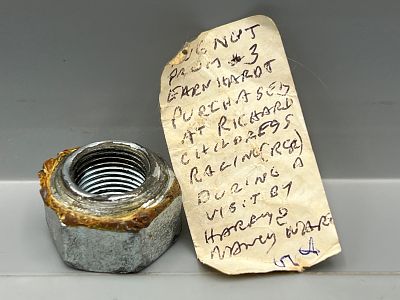 LUG NUT
FROM #3
EARNHARDT
PURCHASED
AT RICHARD
CHILDRESS
RACING (RCR)
DURING A
VISIT BY
HARRY &
NANCY WARD